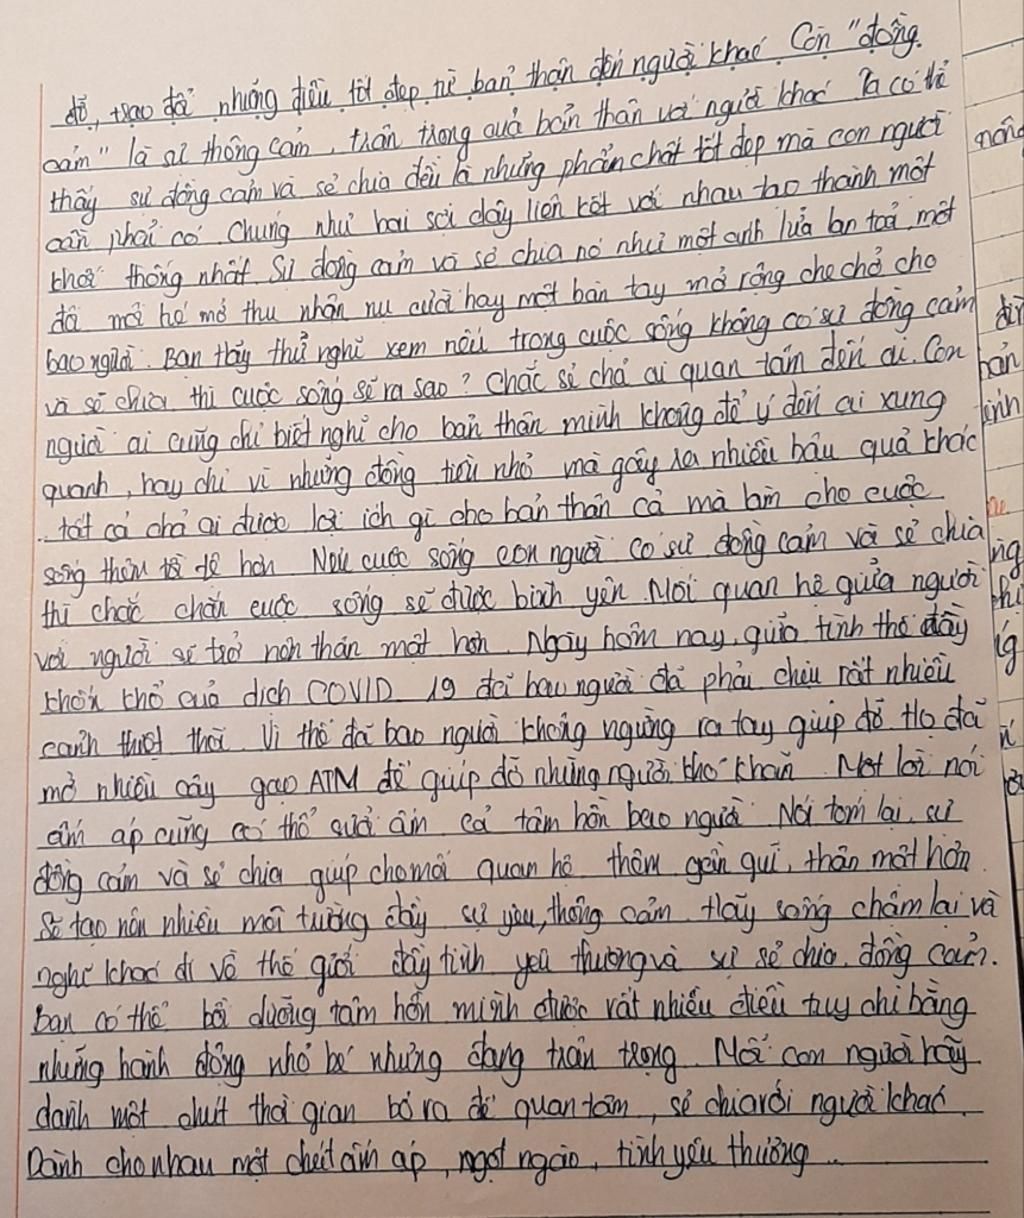 đỡ, trao đổi những điều tốt đẹp từ bản thân đến người khác. Còn "đồng
cảm" là sự thông cảm, trân trọng của bản thân với người khác. Ta có thể
thấy sự đồng cảm và sẻ chia đều là những phẩm chất tốt đẹp mà con người
cần phải có. Chúng như hai sợi dây liên kết với nhau tạo thành một
khối thống nhất. Sự đồng cảm và sẻ chia nó như một ánh lửa lan toả, một
đôi môi hé mở thu nhận nụ cười hay một bàn tay mở rộng che chở cho
bao người. Bạn thấy thử nghĩ xem nếu trong cuộc sống không có sự đồng cảm
và sẻ chia thì cuộc sống sẽ ra sao? Chắc sẽ chả ai quan tâm đến ai. Con
người ai cũng chỉ biết nghĩ cho bản thân mình không để ý đến ai xung
quanh, hay chỉ vì những đồng tiền nhỏ mà gây ra nhiều hậu quả khác
tất cả chả ai được lợi ích gì cho bản thân cả mà làm cho cuộc
sống thêm tồi tệ hơn. Nếu cuộc sống con người có sự đồng cảm và sẻ chia
thì chắc chắn cuộc sống sẽ được bình yên. Mối quan hệ giữa người
với người sẽ trở nên thân mật hơn. Ngày hôm nay, giữa tình thế đầy
khốn khổ của dịch COVID 19 đã bao người đã phải chịu rất nhiều
cảnh thiệt thòi. Vì thế đã bao người không ngừng ra tay giúp đỡ. Họ đã
mở nhiều cây gạo ATM để giúp đỡ những người khó khăn. Một lời nói
ấm áp cũng có thể sưởi ấm cả tâm hồn bao người. Nói tóm lại, sự
đồng cảm và sẻ chia giúp cho mối quan hệ thêm gần gũi, thân mật hơn.
Sẽ tạo nên nhiều môi trường đầy sự yêu, thông cảm. Hãy sống chậm lại và
nghĩ khác đi về thế giới đầy tình yêu thương và sự sẻ chia, đồng cảm.
Bạn có thể bồi dưỡng tâm hồn mình được rất nhiều điều tuy chỉ bằng
những hành động nhỏ bé nhưng đáng trân trọng. Mỗi con người hãy
dành một chút thời gian bỏ ra để quan tâm, sẻ chia với người khác.
Dành cho nhau một chút ấm áp, ngọt ngào, tình yêu thương...